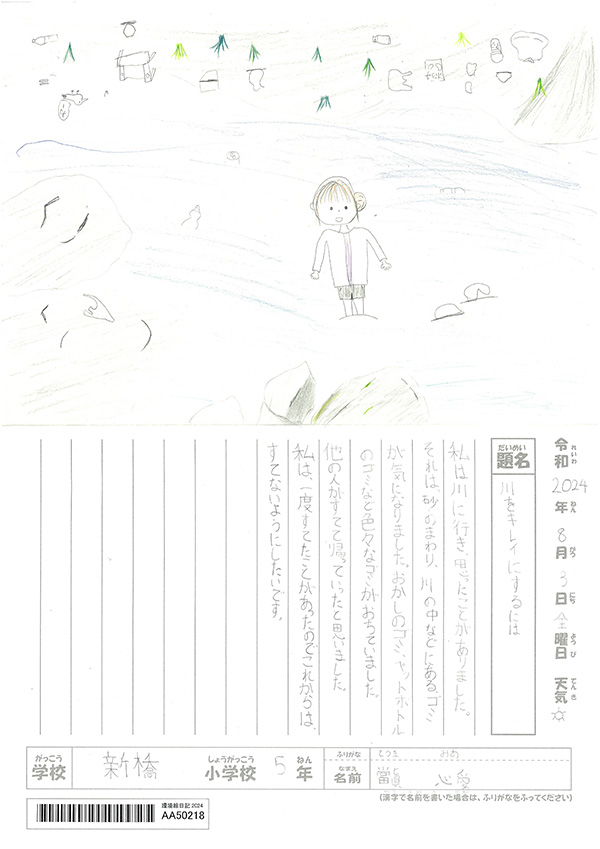 令和 2024年 8月 3日 金曜日 天気
れいわ ねん がつ にち ようび てんき
だいめい
題名
川をキレイにするには
私は川に行き、思ったことがありました。
それは、砂のまわり、川の中などにあるゴミ
が気になりました。おかしのゴミ、ペットボトル
のゴミなど色々なゴミがおちていました。
他の人がすてて帰っていったと思いました。
私は、一度すてたことがあったのでこれからは、
すてないようにしたいです。
がっこう しょうがっこう ねん ふりがな とうま みあ
学校 新橋 小学校 5年 なまえ 名前 當眞 心愛
(漢字で名前を書いた場合は、ふりがなをふってください)
環境絵日記 2024
AA50218